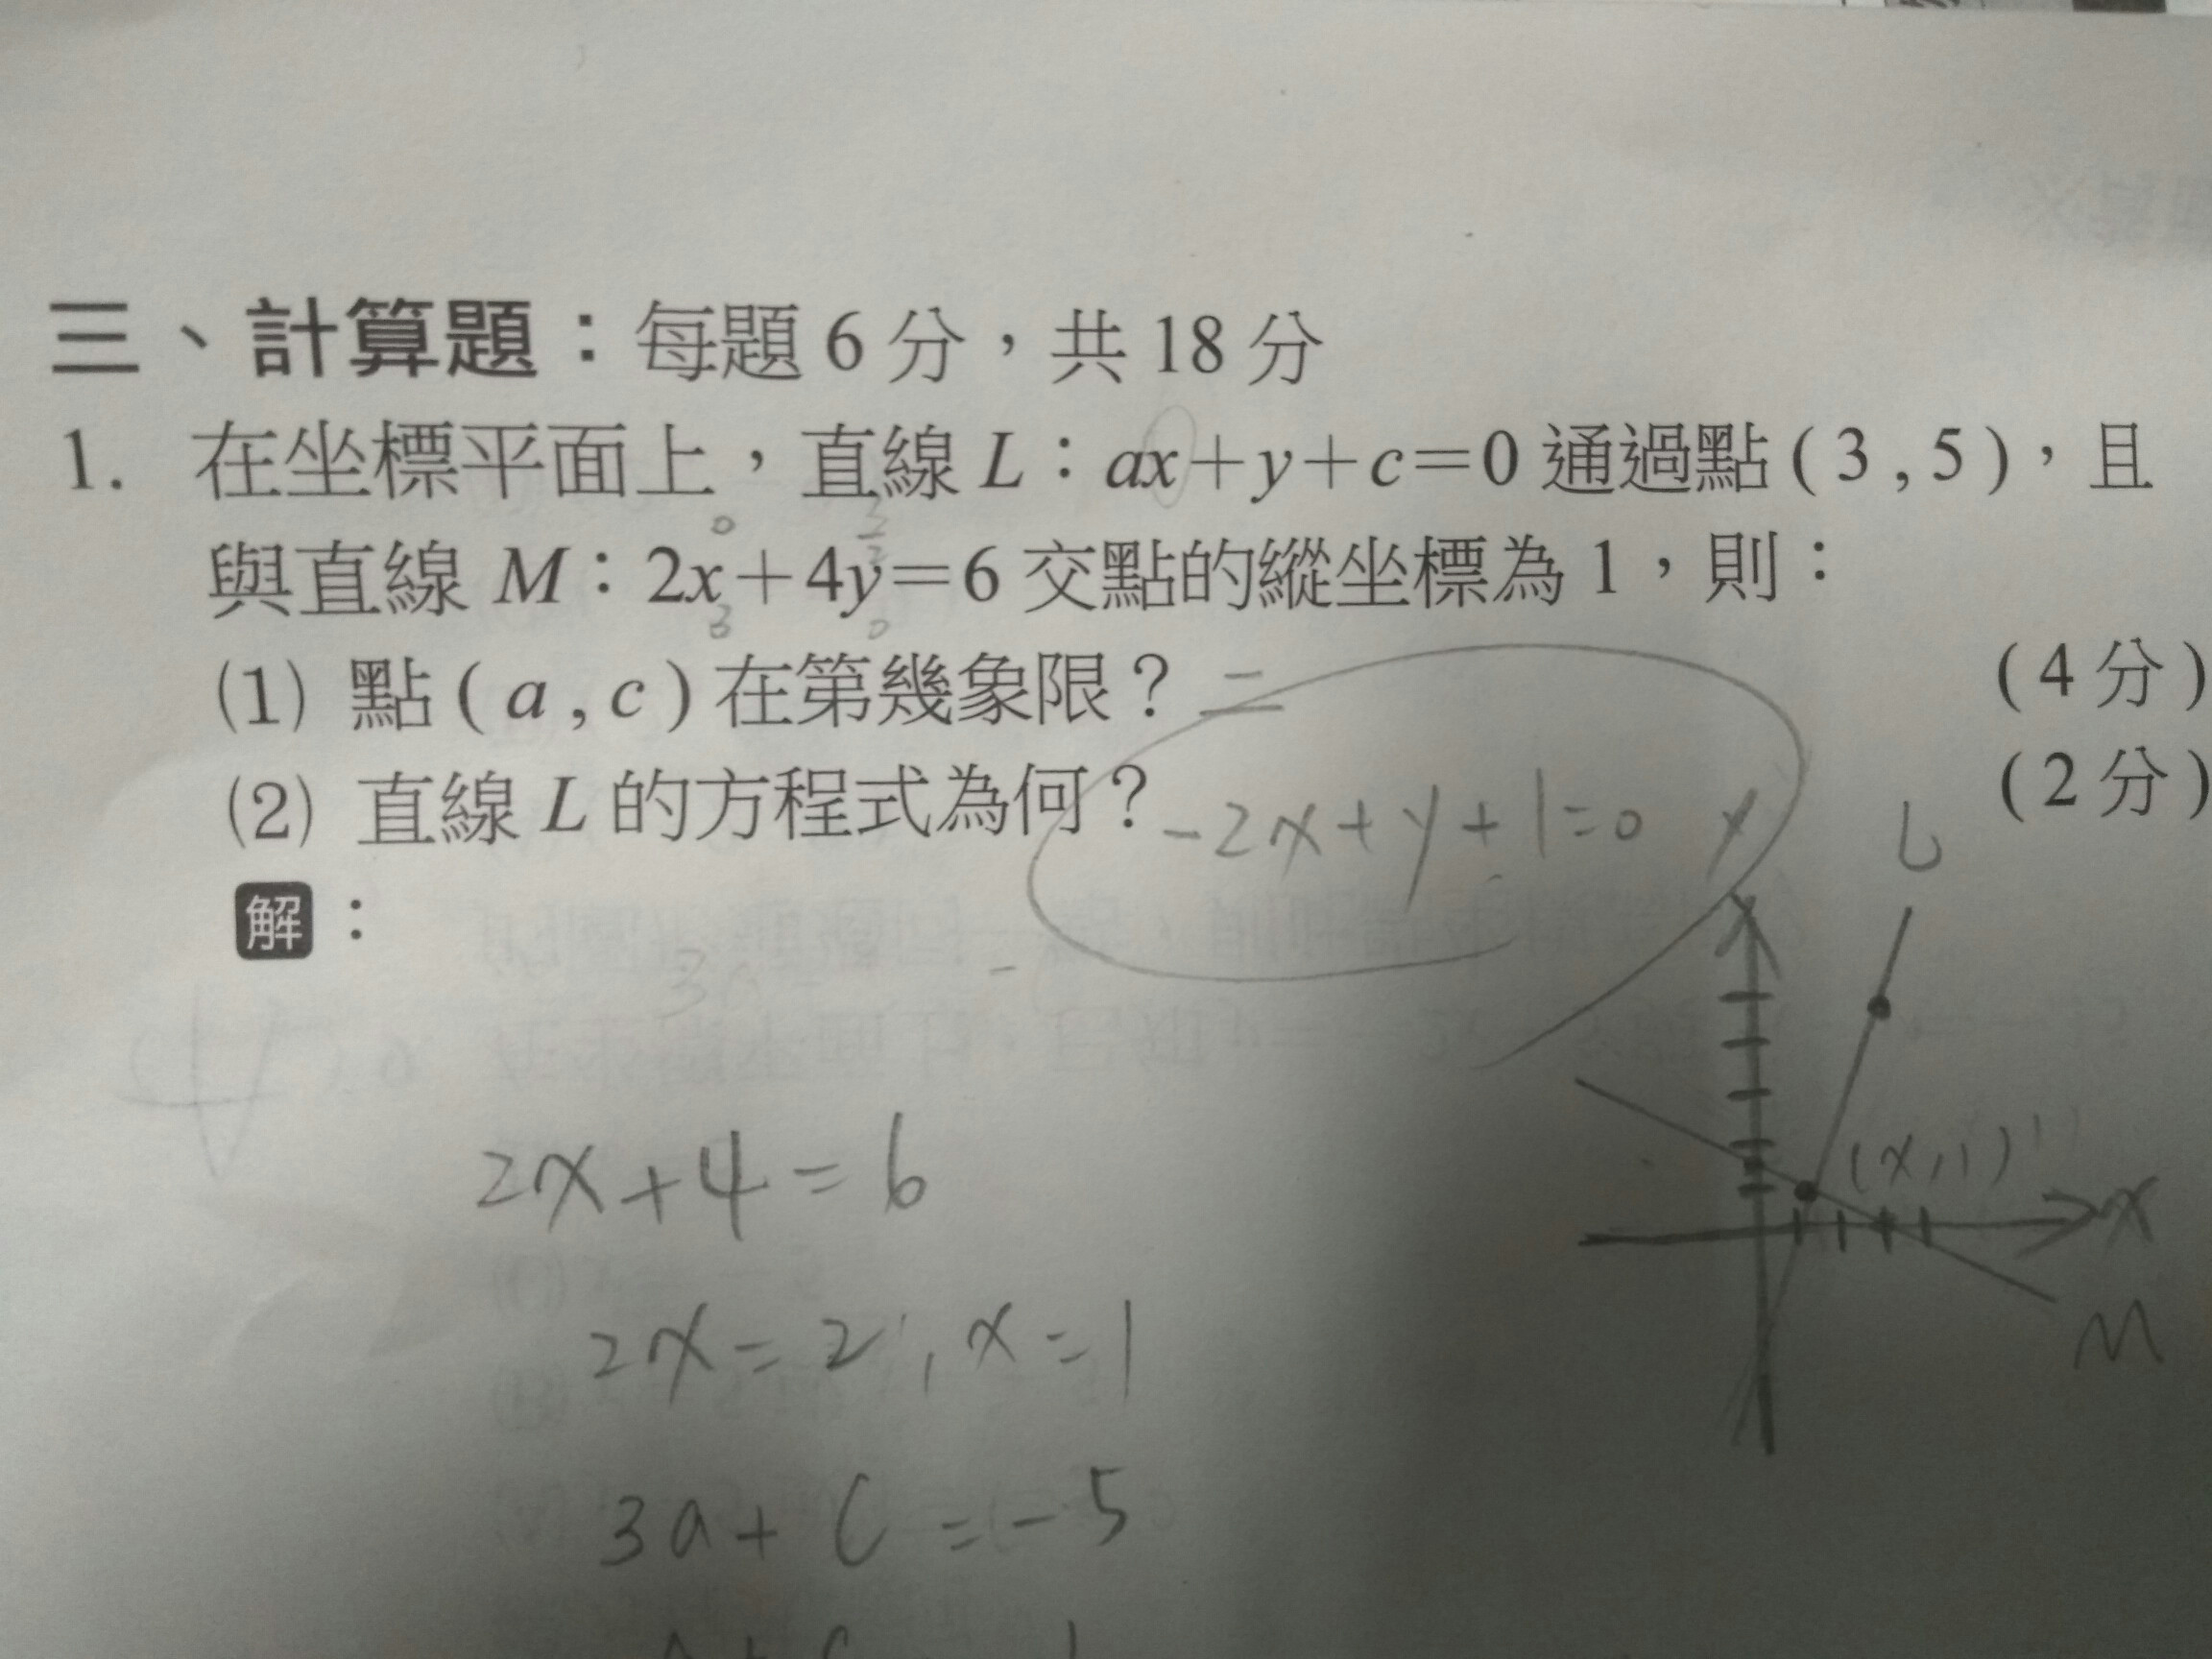 三、計算題：每題 6 分，共 18 分
1. 在坐標平面上，直線 L：ax+y+c=0 通過點 ( 3 , 5 )，且
與直線 M：2x+4y=6 交點的縱坐標為 1，則：
(1) 點 ( a , c ) 在第幾象限？ 二 ( 4 分 )
(2) 直線 L 的方程式為何？ -2x+y+1=0 ( 2 分 )
解：
y
L
(x,1)
x
M
2x+4=6
2x=2, x=1
3a+c=-5